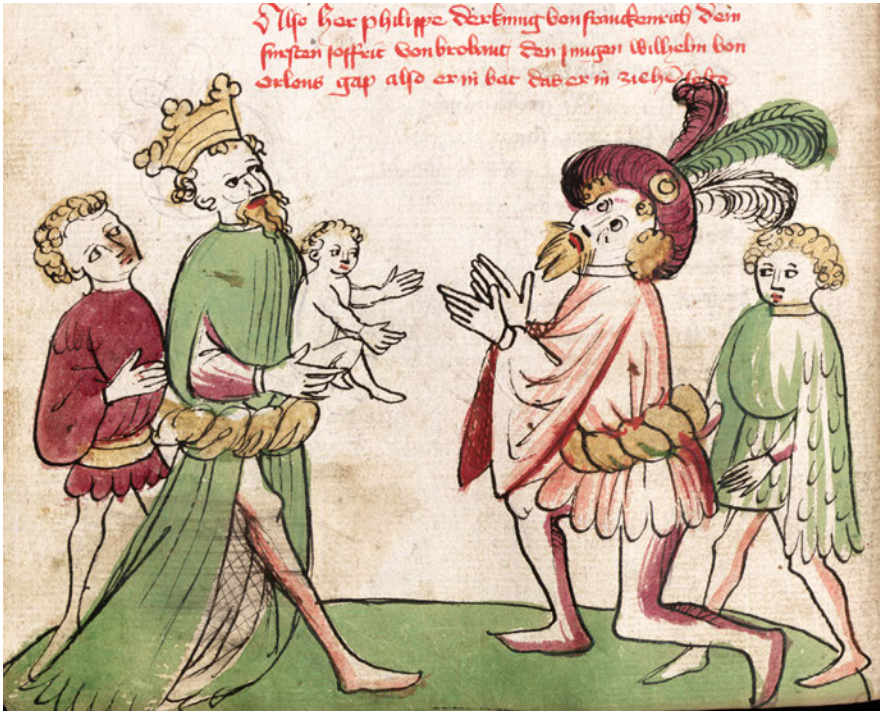 Also her philippe der kunig von franckenrich dem
fursten joffrit von brobant den jungen wilhelm von
orlens gap also er in bat das er in ziehen